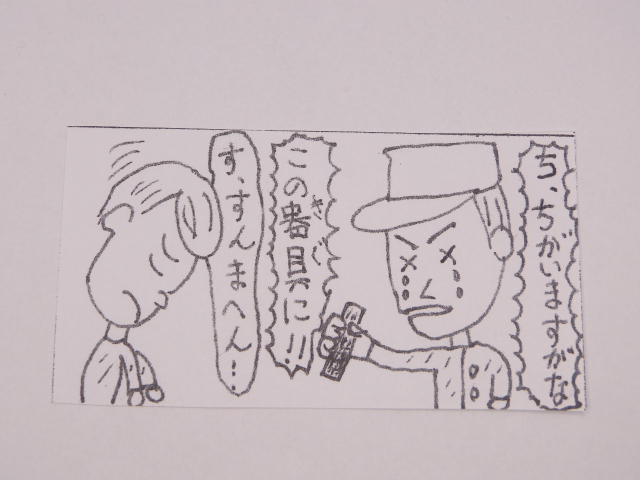 ち、ちがいますがな
この番具に!!
きぐ
す、すんまへん…